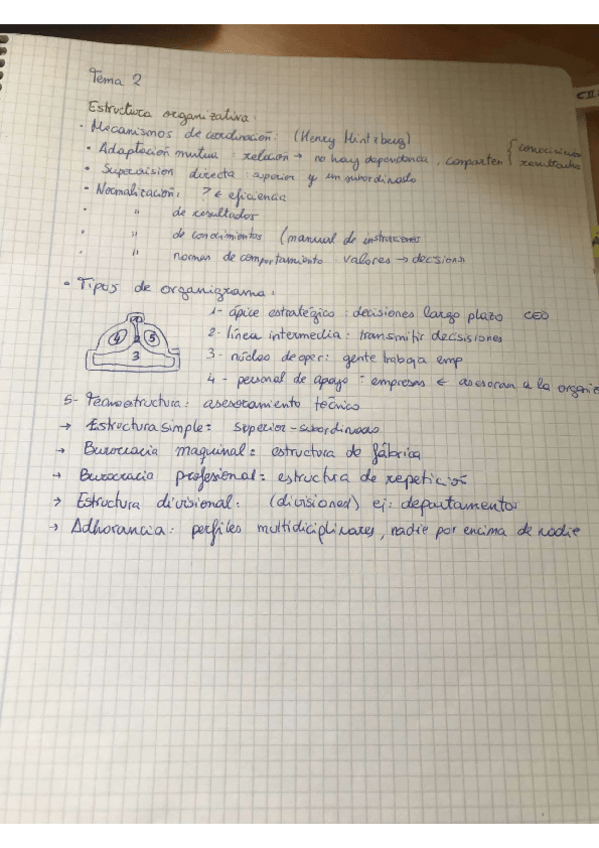 Tema 2
Estructura organizativa:
• Mecanismos de coordinación: (Henry Mintzberg)
• Adaptación mutua: relación → no hay dependencia, comparten { conocimiento
resultados
• Supervision directa: superior y un subordinado
• Normalización: ? ← eficiencia
• " de resultados
• " de conocimientos (manual de instrucciones
• " normas de comportamiento valores → decisión
• Tipos de organigrama:
1- ápice estratégico: decisiones largo plazo CEO
2- línea intermedia: transmitir decisiones
3- núcleo de oper: gente trabaja emp
4- personal de apoyo = empresas ← asesoran a la organiz
4 2 5
3
5- Tecnoestructura: asesoramiento técnico
→ Estructura simple: superior-subordinado
→ Burocracia maquinal: estructura de fábrica
→ Burocracia profesional: estructura de repetición
→ Estructura divisional: (divisioned) ej: departamento
→ Adhorancia: perfiles multidiciplinares, nadie por encima de nadie